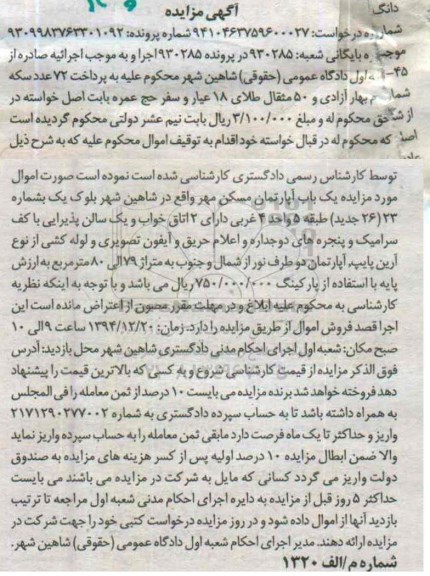 دانگ
آگهی مزایده
شماره درخواست: ۹۴۱۰۴۶۳۷۵۹۶۰۰۰۲۷ شماره پرونده: ۹۳۰۹۹۸۳۷۶۳۳۰۱۰۹۲
شماره بایگانی شعبه: ۹۳۰۲۸۵ در پرونده ۹۳۰۲۸۵ اجرا و به موجب اجرائیه صادره از
اول دادگاه عمومی (حقوقی) شاهین شهر محکوم علیه به پرداخت ۷۲ عدد سکه
بهار آزادی و ۵۰ مثقال طلای ۱۸ عیار و سفر حج عمره بابت اصل خواسته در
حق محکوم له و مبلغ ۳/۱۰۰/۰۰۰ ریال بابت نیم عشر دولتی محکوم گردیده است
که محکوم له در قبال خواسته خود اقدام به توقیف اموال محکوم علیه که به شرح ذیل
توسط کارشناس رسمی دادگستری کارشناسی شده است نموده است صورت اموال
مورد مزایده یک باب آپارتمان مسکن مهر واقع در شاهین شهر بلوک یک بشماره
۲۳ (۲۶ جدید) طبقه ۵ واحد ۴ غربی دارای ۲ اتاق خواب و یک سالن پذیرایی با کف
سرامیک و پنجره های دوجداره و اعلام حریق و آیفون تصویری و لوله کشی از نوع
آرین پایپ، آپارتمان دو طرف نور از شمال و جنوب به متراژ ۷۹ الی ۸۰ متر مربع به ارزش
پایه با استفاده از پارکینگ ۷۵۰/۰۰۰/۰۰۰ ریال می باشد و با توجه به اینکه نظریه
کارشناسی به محکوم علیه ابلاغ و در مهلت مقرر مصون از اعتراض مانده است این
اجرا قصد فروش اموال از طریق مزایده را دارد. زمان: ۱۳۹۴/۱۲/۲۰ ساعت ۹ الی ۱۰
صبح مکان: شعبه اول اجرای احکام مدنی دادگستری شاهین شهر محل بازدید: آدرس
فوق الذکر مزایده از قیمت کارشناسی شروع و به کسی که بالاترین قیمت را پیشنهاد
دهد فروخته خواهد شد برنده مزایده می بایست ۱۰ درصد از ثمن معامله را فی المجلس
به همراه داشته باشد تا به حساب سپرده دادگستری به شماره ۲۱۷۱۲۹۰۲۷۷۰۰۲
واریز و حداکثر تا یک ماه فرصت دارد مابقی ثمن معامله را به حساب سپرده واریز نماید
والا ضمن ابطال مزایده ۱۰ درصد اولیه پس از کسر هزینه های مزایده به صندوق
دولت واریز می گردد کسانی که مایل به شرکت در مزایده می باشند می بایست
حداکثر ۵ روز قبل از مزایده به دایره اجرای احکام مدنی شعبه اول مراجعه تا ترتیب
بازدید آنها از اموال داده شود و در روز مزایده درخواست کتبی خود را جهت شرکت در
مزایده ارائه دهند. مدیر اجرای احکام شعبه اول دادگاه عمومی (حقوقی) شاهین شهر.
شماره م/الف ۱۳۲۰